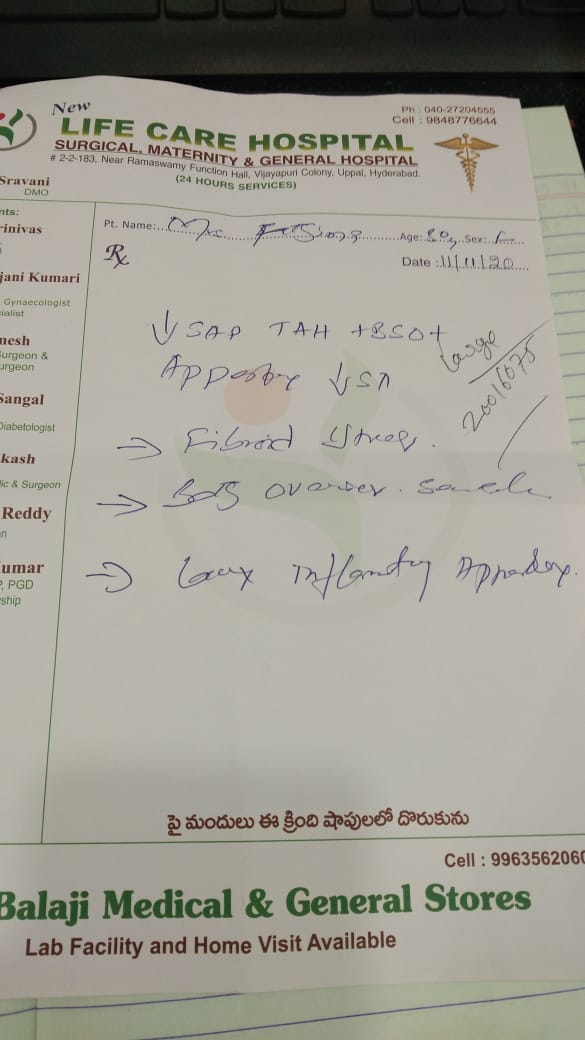 New
LIFE CARE HOSPITAL
SURGICAL, MATERNITY & GENERAL HOSPITAL
# 2-2-183, Near Ramaswamy Function Hall, Vijayapuri Colony, Uppal, Hyderabad.
(24 HOURS SERVICES)
Ph : 040-27204555
Cell : 9848776644
Sravani
DMO
nts:
rinivas
jani Kumari
Gynaecologist
ialist
nesh
urgeon &
urgeon
Sangal
Diabetologist
kash
ic & Surgeon
Reddy
n
umar
P, PGD
ship
Pt. Name: Mrs. Age: Sex: F
Rx
Date : 11/11/20
↓ SAP TAH + BSO +
↓ SA
Large
20016075
→ Fibroid
→
→ Appendix.
పై మందులు ఈ క్రింది షాపులలో దొరుకును
Cell : 9963562060
Balaji Medical & General Stores
Lab Facility and Home Visit Available